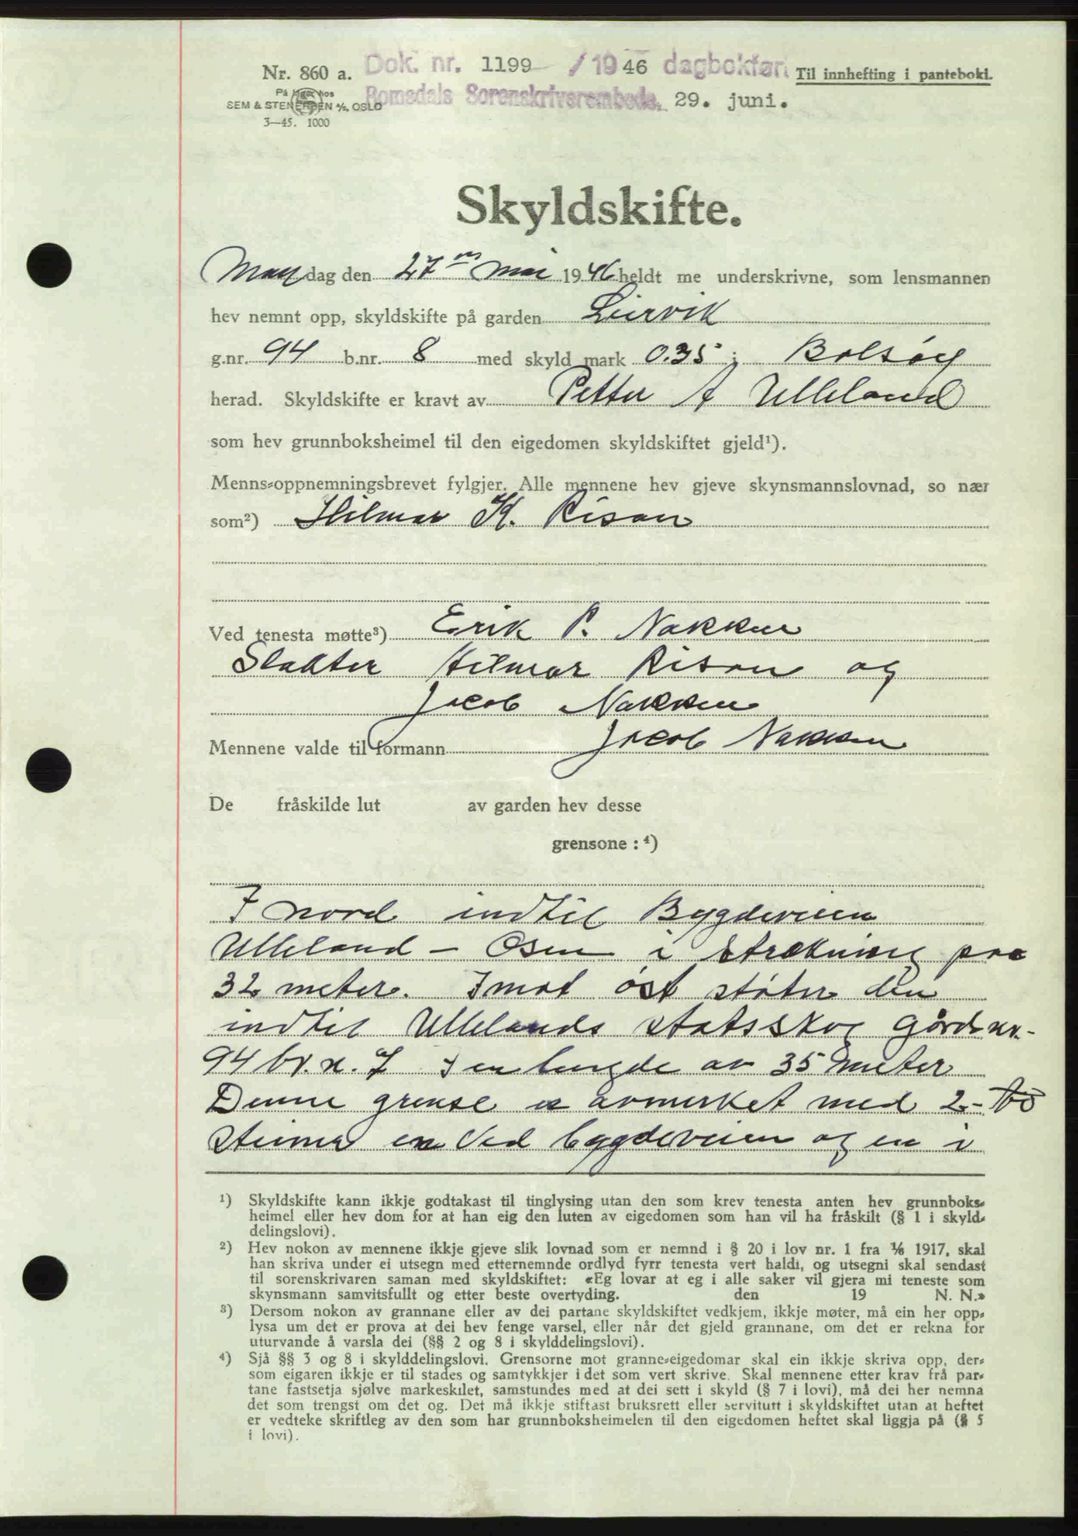 Nr. 860 a.
Dok. nr. 1199 / 1946 dagbokført
Til innhefting i pantebok.
På lager hos
SEM & STENERSEN A/S, OSLO
3—45. 1000
Romsdals Sorenskriverembede, 29. juni.
Skyldskifte.
Mandag den 27de mai 1946 heldt me underskrivne, som lensmannen
hev nemnt opp, skyldskifte på garden Leirvik
g.nr. 94 b.nr. 8 med skyld mark 0.35 i Bolsøy
herad. Skyldskifte er kravt av Petter A Ulleland
som hev grunnboksheimel til den eigedomen skyldskiftet gjeld¹).
Menns-oppnemningsbrevet fylgjer. Alle mennene hev gjeve skynsmannslovnad, so nær
som²) Hilmar K. Risan
Ved tenesta møtte³) Erik P. Nakken
Slakter Hilmar Risan og
Jacob Nakken
Mennene valde til formann Jacob Nakken
De fråskilde lut av garden hev desse
grensone : ⁴)
I nord indtil Bygdeveien
Ulleland - Osen i strækning paa
32 meter. Imot øst støter den
indtil Ullelands statsskog Gårdsnr.
94 br.n. 7 I en lengde av 35 meter
Denne grense er avmerket med 2- to
steiner en ved bygdeveien og en i
¹) Skyldskifte kann ikkje godtakast til tinglysing utan den som krev tenesta anten hev grunnboks-
heimel eller hev dom for at han eig den luten av eigedomen som han vil ha fråskilt (§ 1 i skyld-
delingslovi).
²) Hev nokon av mennene ikkje gjeve slik lovnad som er nemnd i § 20 i lov nr. 1 fra ⅛ 1917, skal
han skriva under ei utsegn med etternemnde ordlyd fyrr tenesta vert haldi, og utsegni skal sendast
til sorenskrivaren saman med skyldskiftet: «Eg lovar at eg i alle saker vil gjera mi teneste som
skynsmann samvitsfullt og etter beste overtyding. den 19 N. N.»
³) Dersom nokon av grannane eller av dei partane skyldskiftet vedkjem, ikkje møter, må ein her opp-
lysa um det er prova at dei hev fenge varsel, eller når det gjeld grannane, om det er rekna for
uturvande å varsla dei (§§ 2 og 8 i skylddelingslovi).
⁴) Sjå §§ 3 og 8 i skylddelingslovi. Grensorne mot granne-eigedomar skal ein ikkje skriva opp, der-
som eigaren ikkje er til stades og samtykkjer i det som vert skrive. Skal mennene etter krav frå par-
tane fastsetja sjølve markeskilet, samstundes med at dei sett i skyld (§ 7 i lovi), må dei her nemna
det som trengst om det og. Det må ikkje stiftast bruksrett eller servitutt i skyldskiftet utan at heftet
er vedteke skriftleg av den som har grunnboksheimelen til den eigedomen heftet skal liggja på (§ 5
i lovi).